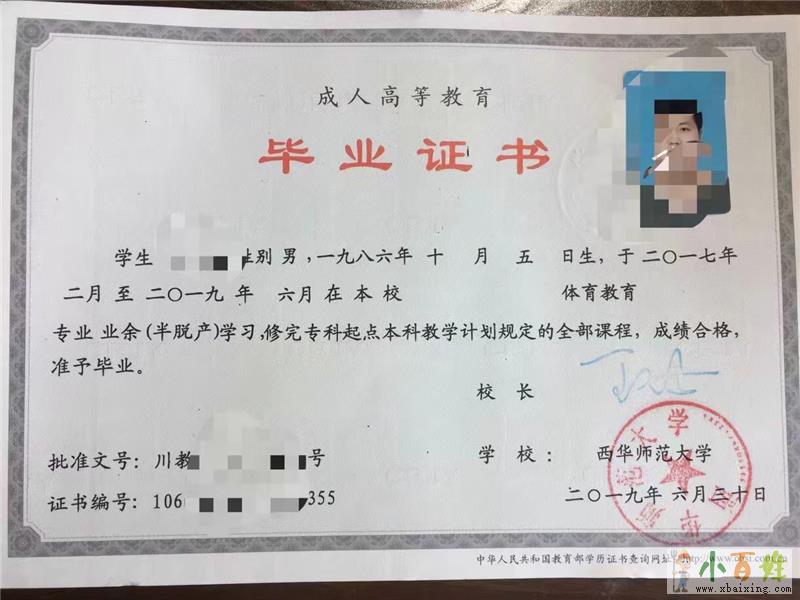 成人高等教育
毕业证书
学生 性别 男，一九八六年 十 月 五 日生，于二〇一七年
二月 至 二〇一九 年 六月 在 本 校 体育教育
专业 业余(半脱产)学习，修完专科起点本科教学计划规定的全部课程，成绩合格，
准予毕业。
校 长
批准文号：川教 号
学 校： 西华师范大学
证书编号：106 355
二〇一九年 六月三十日
中华人民共和国教育部学历证书查询网址：http://www.chsi.com.cn
小百姓
www.xbaixing.com